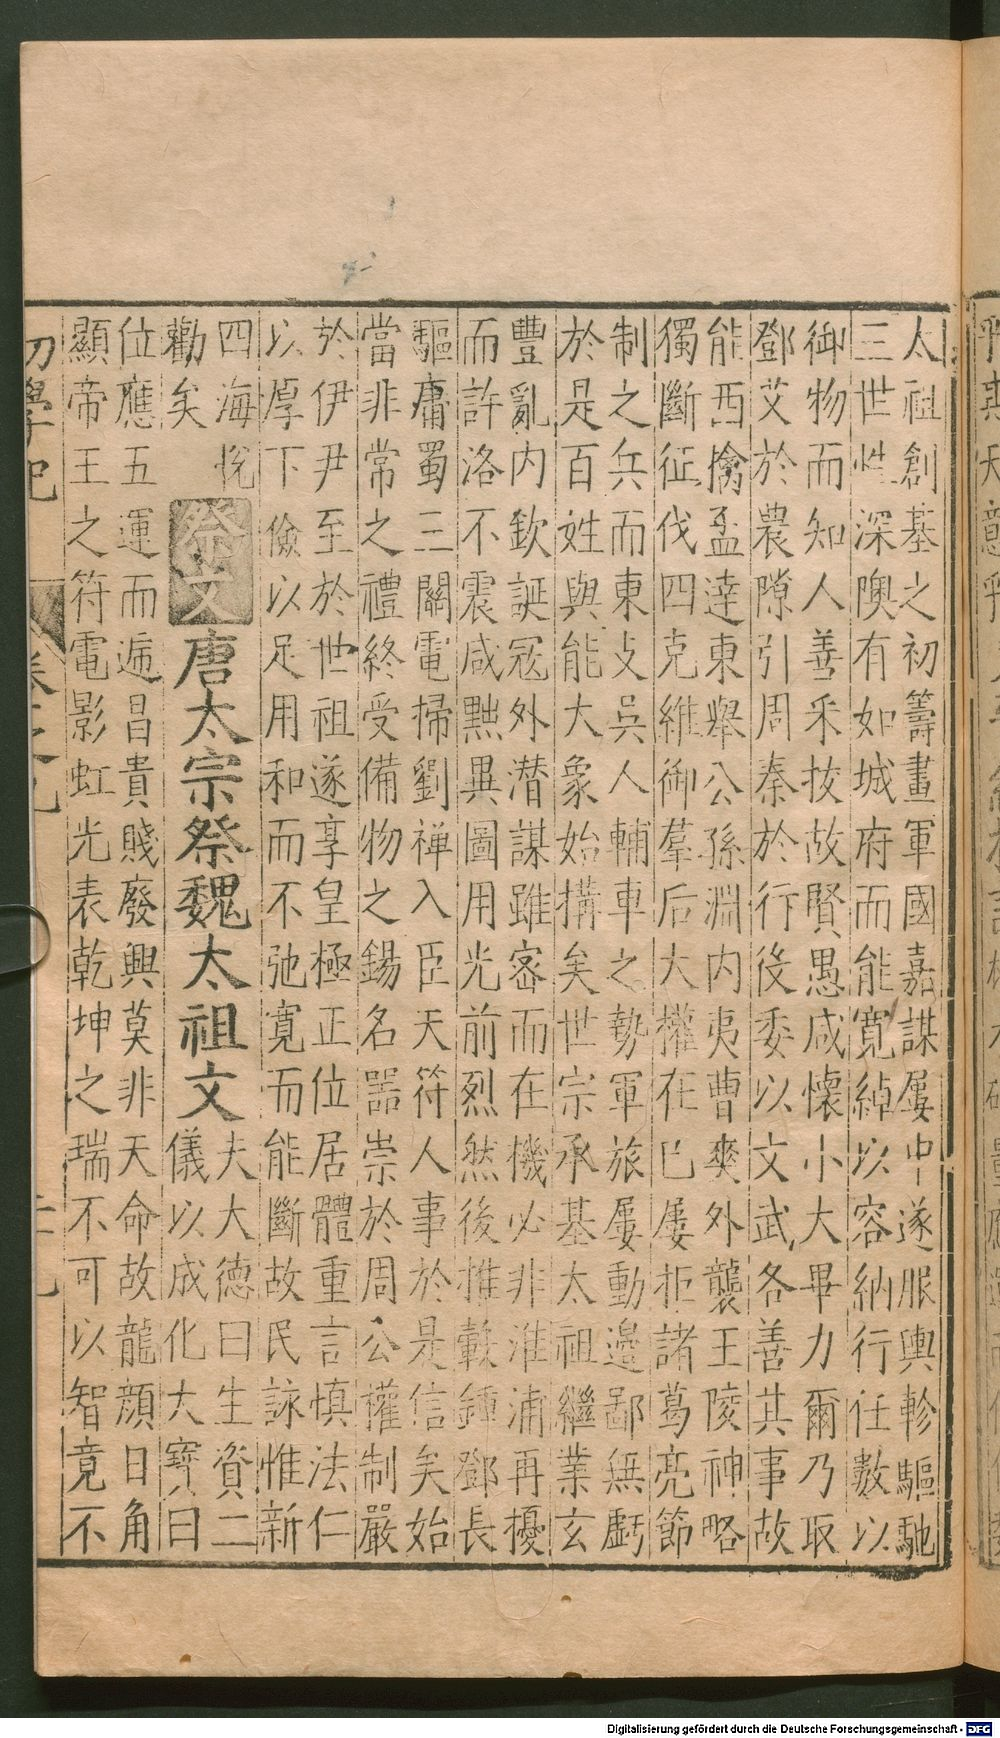 太祖創基之初籌畫軍國嘉謀屢中遂服輿軫驅馳
三世性深隩有如城府而能寬綽以容納行任數以
御物而知人善采拔故賢愚咸懷小大畢力爾乃取
鄧艾於農隙引周秦於行役委以文武各善其事故
能西擒孟達東舉公孫淵内夷曹爽外襲王陵神略
獨斷征伐四克維御羣后大權在已屢拒諸葛亮節
制之兵而東支吳人輔車之勢軍旅屢動邊鄙無虧
於是百姓與能大象始搆矣世宗承基太祖繼業玄
豐亂内欽誕寇外潜謀雖密而在機必非淮浦再擾
而許洛不震咸黜異圖用光前烈然後推轂鍾鄧長
驅庸蜀三關電掃劉禅入臣天符人事於是信矣始
當非常之禮終受備物之錫名噐崇於周公權制嚴
於伊尹至於世祖遂享皇極正位居體重言慎法仁
以厚下儉以足用和而不弛寬而能斷故民詠惟新
四海悅
勸矣
祭文唐太宗祭魏太祖文
夫大德曰生資二
儀以成化大寶曰
位應五運而遞昌貴賤廢興莫非天命故龍顔日角
顯帝王之符電影虹光表乾坤之瑞不可以智竟不
初學記
Digitalisierung gefördert durch die Deutsche Forschungsgemeinschaft - DFG